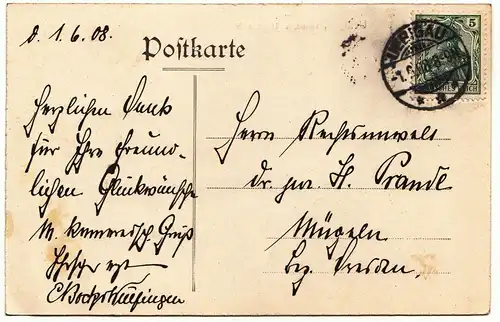 d. 1.6.08.
Postkarte
5
Herzlichen Dank
für Ihre freund-
lichen Glückwünsche
M. Gruß
Herrn Rechtsanwalt
dr. jur. H. Prandl
Mügeln
bez. Dresden.